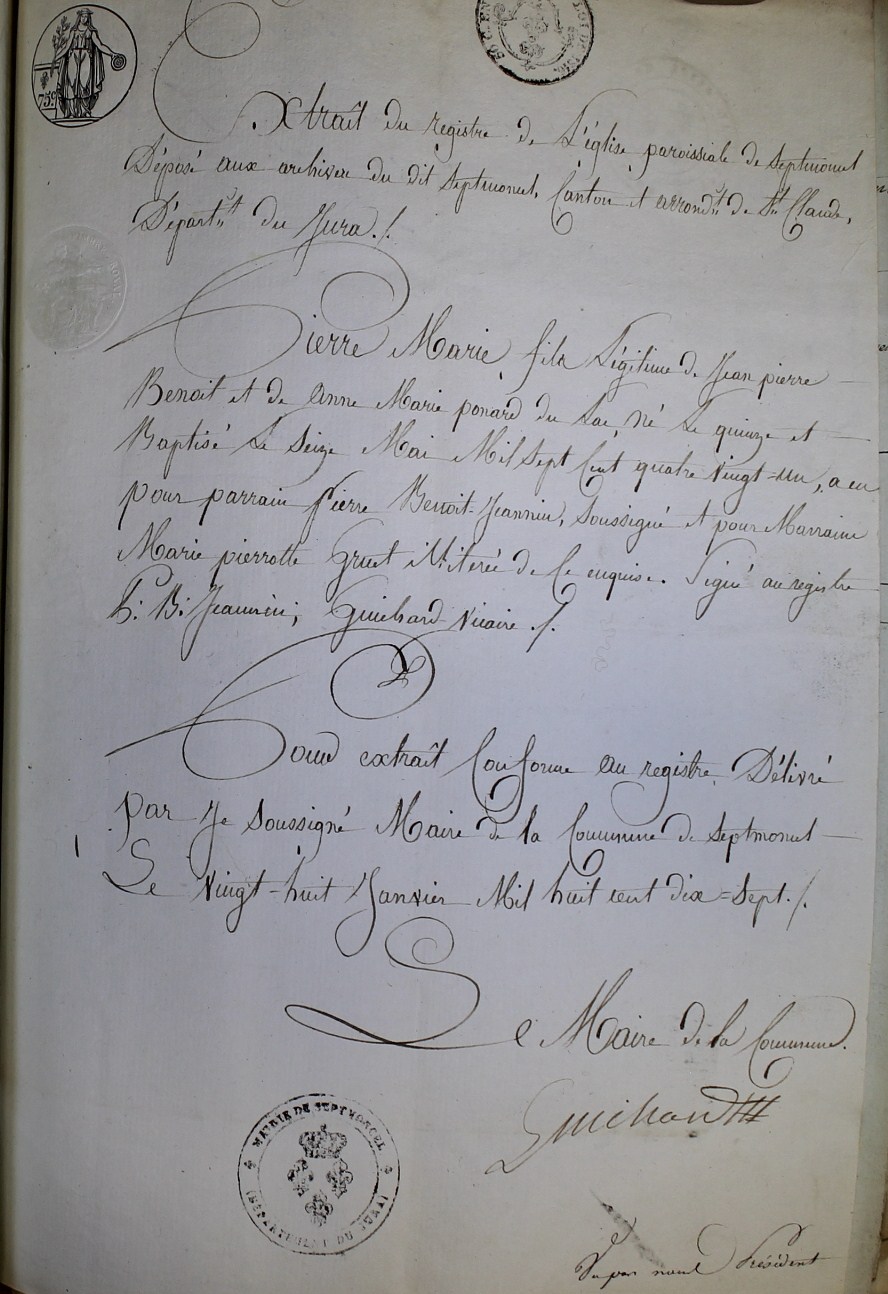 75c
Extrait du registre de L'église paroissiale de Septmoncel
Déposé aux archives du dit Septmoncel, Canton et arrondt de St Claude,
Départt du Jura ./.
Pierre Marie, fils Légitime de Jean pierre
Benoit et de Anne Marie ponard du Lac, Né Le quinze et
Baptisé Le Seize Mai Mil Sept Cent quatre vingt=un, a eu
pour parrain Pierre Benoit-Jeannin, Soussigné et pour Marraine
Marie pierrotte Gruet illiterée de Ce enquise. Signé au registre
P. B. Jeannin; Guichard Vicaire ./.
Pour extrait Conforme au registre, Délivré
par Je Soussigné Maire de la Commune de Septmoncel
Le vingt-huit Janvier Mil huit cent dix=Sept./.
Le Maire de la Commune.
Guichard
MAIRIE DE SEPTMONCEL
(DEPARTEMENT DU JURA)
Vu par nous Président